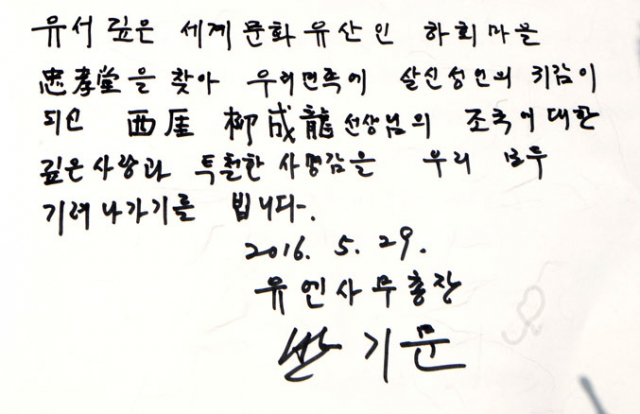 유서 깊은 세계문화유산인 하회마을
忠孝堂을 찾아 우리민족에 살신성인의 귀감이
되신 西厓 柳成龍선생님의 조국에 대한
깊은 사랑과 투철한 사명감을 우리 모두
기려나가기를 빕니다.
2016. 5. 29.
유엔사무총장
반기문